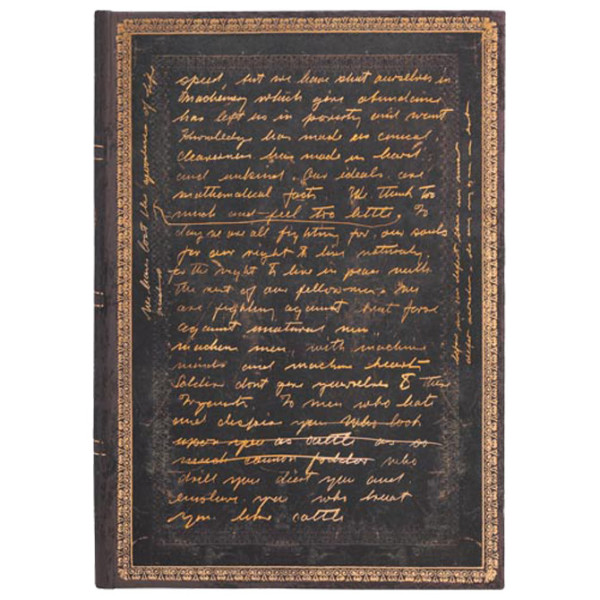 speed, but we have shut ourselves in
Machinery which gives abundance
has left us in poverty and want
Knowledge has made us cynical
cleverness has made us hard
and unkind. Our ideals are
mathematical facts. We think too
much and feel too little. To
day we are all fighting for our souls
for our right to live naturally
for the right to live in peace with
the rest of our fellow men. Men
are fighting against brut force
against unatural men
machine men, with machine
minds and machine hearts
Soldiers dont give yourselves to these
To men who hate
and despise you who look
upon you as cattle as so
much cannon fodder who
drill you diet you and
enslave you who treat
you like cattle
We have lost the